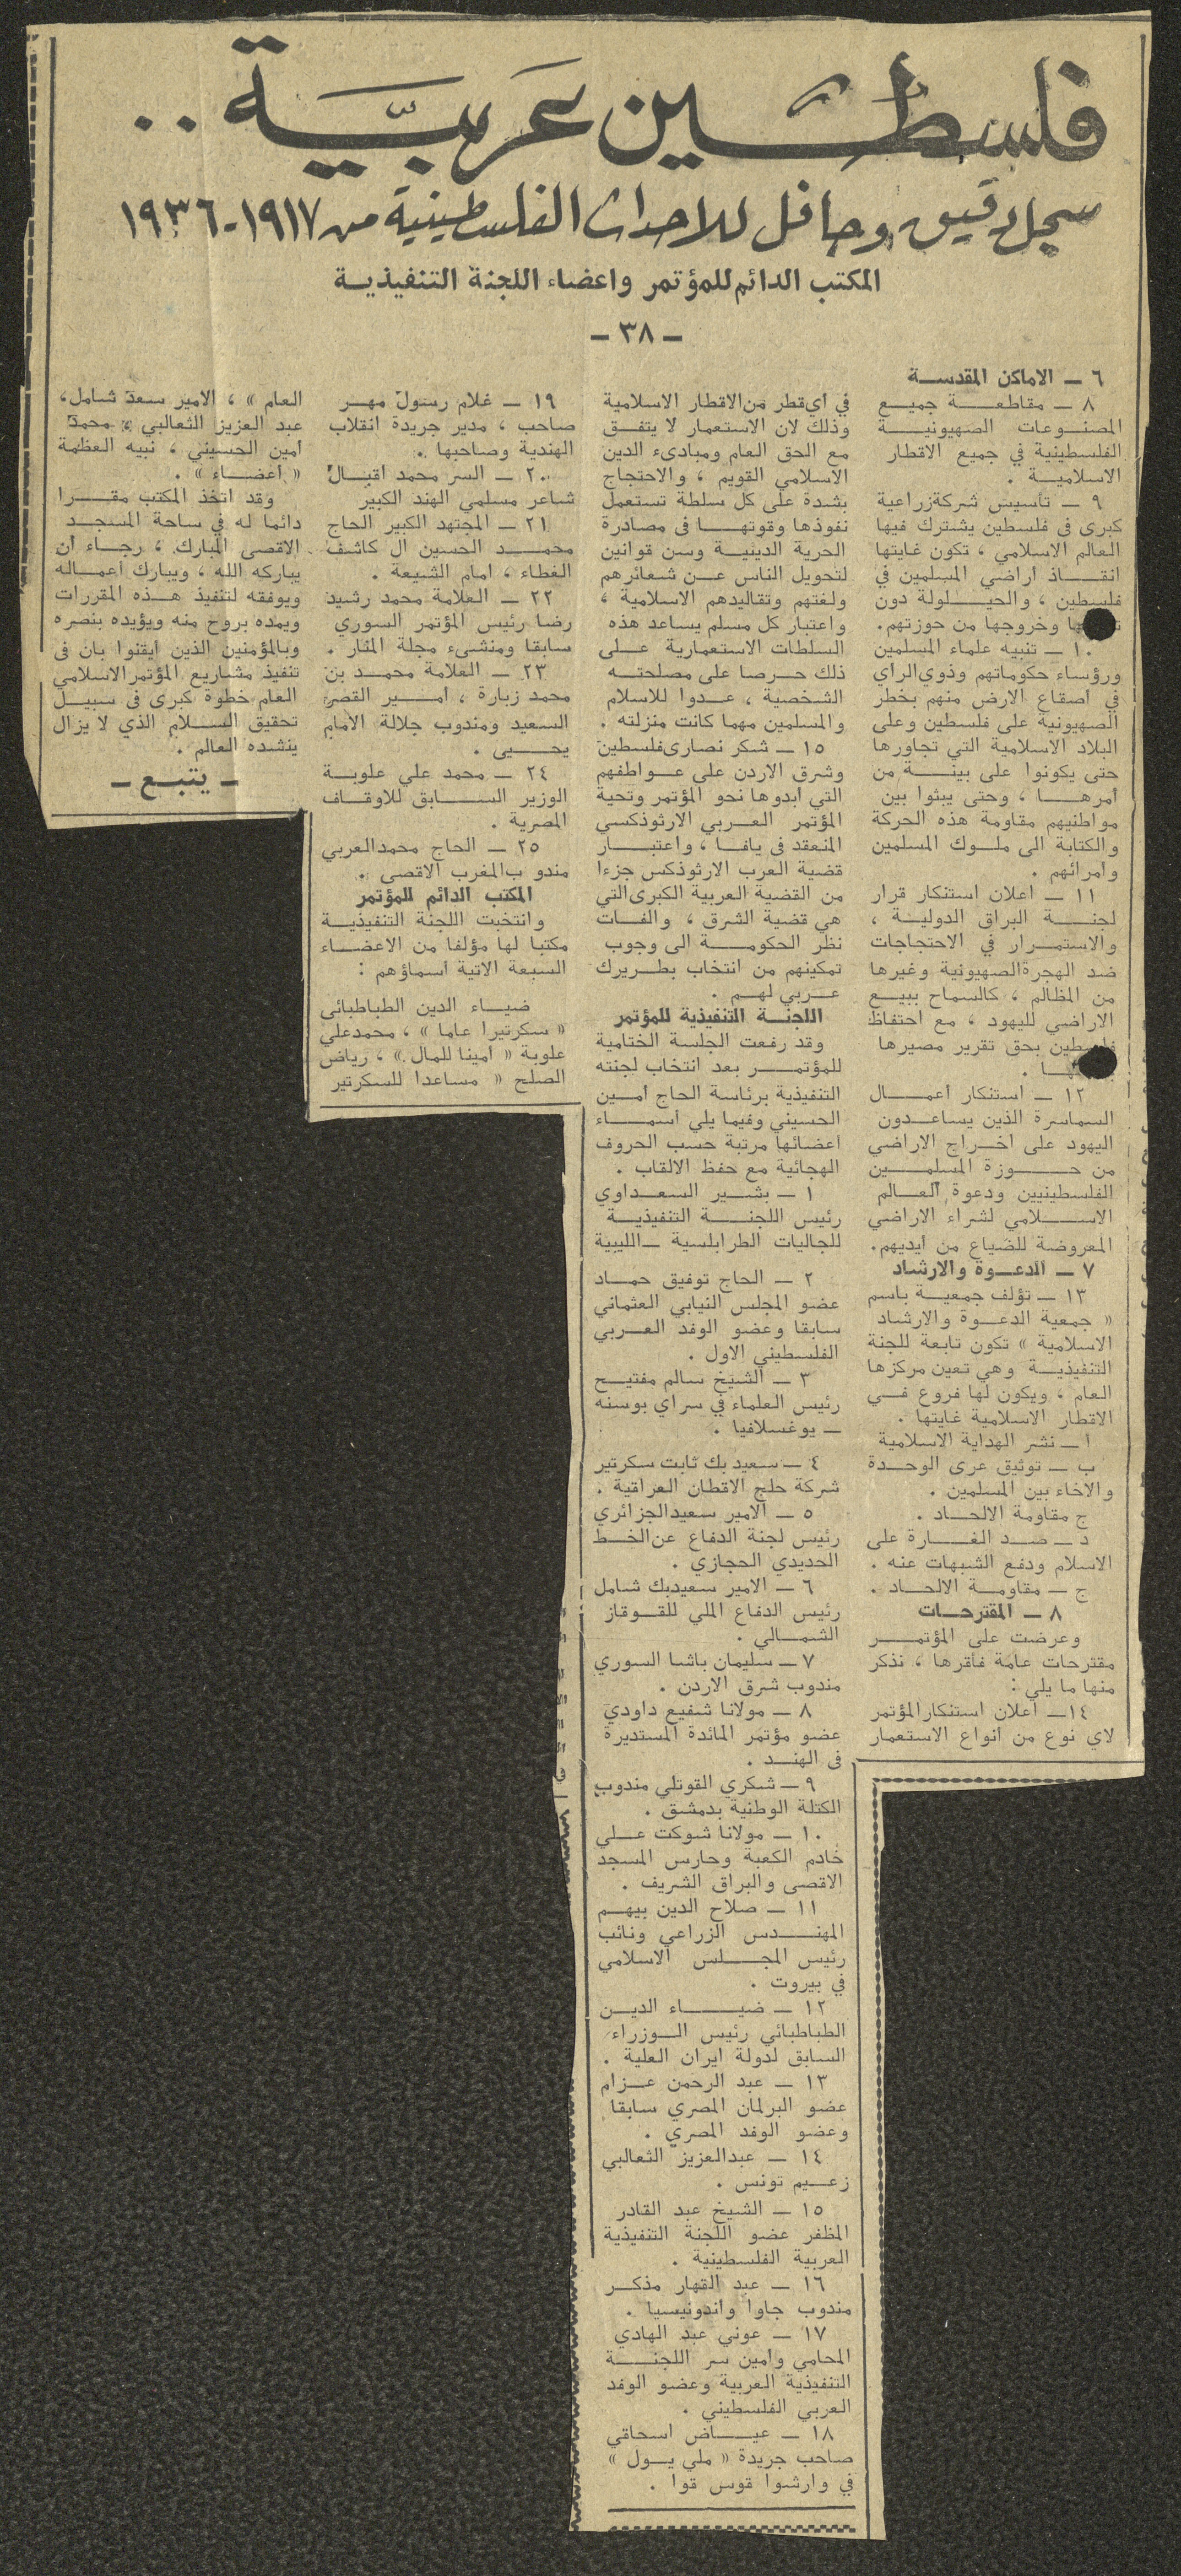 فلسطين عربية ..
سجل دقيق وحافل للاحداث الفلسطينية من ١٩١٧-١٩٣٦
المكتب الدائم للمؤتمر واعضاء اللجنة التنفيذيــة
– ٣٨ –
٦ – الاماكن المقدســة
٨ – مقاطعــة جميــع
المصنــوعات الصهيونيــة
الفلسطينية في جميع الاقطار
الاسلاميــة .
٩ – تأسيس شركةزراعية
كبرى فى فلسطين يشترك فيها
العالم الاسلامي ، تكون غايتها
انقــاذ اراضي المسلمين في
فلسطين ، والحيــلولة دون
وخروجها من حوزتهم.
١٠ – تنبيه علماء المسلمين
ورؤساء حكوماتهم وذوي الرأي
في اصقاع الارض منهم بخطر
الصهيونية على فلسطين وعلى
البلاد الاسلامية التي تجاورها
حتى يكونوا على بينــة من
أمرهــا ، وحتى يبثوا بين
مواطنيهم مقاومة هذه الحركة
والكتابة الى ملــوك المسلمين
وأمرائهم .
١١ – اعلان استنكار قرار
لجنــة البراق الدوليــة ،
والاستمــرار في الاحتجاجات
ضد الهجرة الصهيونية وغيرها
من المظالم ، كالسماح ببيــع
الاراضي لليهود ، مع احتفاظ
فلسطين بحق تقرير مصيرها
.
١٢ – استنكار أعمــال
السماسرة الذين يساعــدون
اليهود على اخــراج الاراضي
من حــوزة المسلمــين
الفلسطينيين ودعوة العــالم
الاســلامي لشراء الاراضي
المعروضة للضياع من أيديهم.
٧ – الدعــوة والارشاد
١٣ – تؤلف جمعيــة باسم
« جمعية الدعــوة والارشاد
الاسلامية » تكون تابعة للجنة
التنفيذيــة وهي تعين مركزها
العام ، ويكون لها فروع فــي
الاقطار الاسلامية غايتها .
ا – نشر الهداية الاسلامية
ب – توثيق عرى الوحــدة
والاخاء بين المسلمين .
ج مقاومة الالحــاد .
د – صــد الغــارة على
الاسلام ودفع الشبهات عنه .
ج – مقاومــة الالحــاد .
٨ – المقترحــات
وعرضت على المؤتمــر
مقترحات عامة فأقرها ، نذكر
منها ما يلي :
١٤– اعلان استنكار المؤتمر
لاي نوع من أنواع الاستعمار
في أي قطر من الاقطار الاسلامية
وذلك لان الاستعمار لا يتفــق
مع الحق العام ومبادىء الدين
الاسلامي القويم ، والاحتجاج
بشدة على كل سلطة تستعمل
نفوذها وقوتهــا فى مصادرة
الحرية الدينيــة وسن قوانين
لتحويل الناس عــن شعائرهم
ولغتهم وتقاليدهم الاسلامية ،
واعتبار كل مسلم يساعد هذه
السلطات الاستعمارية عــلى
ذلك حــرصا على مصلحتــه
الشخصية ، عــدوا للاسلام
والمسلمين مهما كانت منزلته .
١٥ – شكر نصارى فلسطين
وشرق الاردن على عــواطفهم
التي أبدوها نحو المؤتمر وتحية
المؤتمر العــربي الارثوذكسي
المنعقد فى يافــا ، واعتبــار
قضية العرب الارثوذكس جزءا
من القضية العربية الكبرى التي
هي قضية الشرق ، والفــات
نظر الحكومــة الى وجوب
تمكينهم من انتخاب بطــريرك
عــربي لهــم .
اللجنــة التنفيذية للمؤتمر
وقد رفعت الجلسة الختامية
للمؤتمــر بعد انتخاب لجنته
التنفيذية برئاسة الحاج أمــين
الحسيني وفيما يلي أسمــاء
اعضائها مرتبة حسب الحروف
الهجائية مع حفظ الالقاب .
١ – بشــير السعــداوي
رئيس اللجنــة التنفيذيــة
للجاليات الطرابلسية –الليبية
٢ – الحاج توفيق حمــاد
عضو المجلس النيابي العثماني
سابقا وعضو الوفد العــربي
الفلسطيني الاول .
٣ – الشيخ سالم مفتيــح
رئيس العلماء في سراي بوسنه
– يوغسلافيا .
٤ – سعيد بك ثابت سكرتير
شركة حلج الاقطان العراقية .
٥ – الامير سعيدالجزائري
رئيس لجنة الدفاع عن الخــط
الحديدي الحجازي .
٦ – الامير سعيدبك شامل
رئيس الدفاع الملي للقــوقاز
الشمــالي .
٧ – سليمان باشا السوري
مندوب شرق الاردن .
٨ – مولانا شفيع داودي
عضو مؤتمر المائدة المستديرة
فى الهنــد .
٩ – شكري القوتلي مندوب
الكتلة الوطنية بدمشق .
١٠ – مولانا شوكت عــلي
خادم الكعبة وحارس المسجد
الاقصى والبراق الشريف .
١١ – صلاح الدين بيهــم
المهنــدس الزراعي ونائب
رئيس المجــلس الاسلامي
في بيروت .
١٢ – ضيــاء الديــن
الطباطبائي رئيس الــوزراء
السابق لدولة ايران العلية .
١٣ – عبد الرحمن عــزام
عضو البرلمان المصري سابقا
وعضو الوفد المصري .
١٤ – عبدالعزيز الثعالبي
زعــيم تونس .
١٥ – الشيخ عبد القادر
المظفر عضو اللجنة التنفيذية
العربية الفلسطينية .
١٦ – عبد القهار مذكــر
مندوب جاوا واندونيسيا .
١٧ – عوني عبد الهادي
المحامي وأمين سر اللجنــة
التنفيذية العربية وعضو الوفد
العربي الفلسطيني .
١٨ – عيــاض اسحاقي
صاحب جريدة « ملي يــول »
في وارشوا قوس قوا .
١٩ – غلام رسول مهــر
صاحب ، مدير جريدة انقلاب
الهندية وصاحبها .
٢٠ – السر محمد اقبــال
شاعر مسلمي الهند الكبير
٢١ – المجتهد الكبير الحاج
محمــد الحسين آل كاشف
الغطاء ، امام الشيعة .
٢٢ – العلامة محمد رشيد
رضا رئيس المؤتمر السوري
سابقا ومنشىء مجلة المنار .
٢٣ – العلامة محمــد بن
محمد زبارة ، أمــير القصر
السعيد ومندوب جلالة الامام
يحــيى .
٢٤ – محمد علي علوبــة
الوزير الســابق للاوقــاف
المصرية .
٢٥ – الحاج محمدالعربي
مندوب المغرب الاقصى .
المكتب الدائم للمؤتمر
وانتخبت اللجنة التنفيذيــة
مكتبا لها مؤلفا من الاعضــاء
السبعة الاتية اسماؤهم :
ضيــاء الدين الطباطبائي
« سكرتيرا عاما » ، محمدعلي
علوبة « أمينا للمال » ، رياض
الصلح « مساعدا للسكرتير
العام » ، الامير سعد شامل،
عبد العزيز الثعالبي ، محمد
أمين الحسيني ، نبيه العظمة
« أعضــاء » .
وقد اتخذ المكتب مقــرا
دائما له في ساحة المسجــد
الاقصى المبارك ، رجــاء أن
يباركه الله ، ويبارك أعمــاله
ويوفقه لتنفيذ هــذه المقررات
ويمده بروح منه ويؤيده بنصره
وبالمؤمنين الذين أيقنوا بأن فى
تنفيذ مشاريع المؤتمر الاسلامي
العام خطوة كبرى فى سبيــل
تحقيق الســلام الذي لا يزال
ينشده العالم .
– يتبــع –